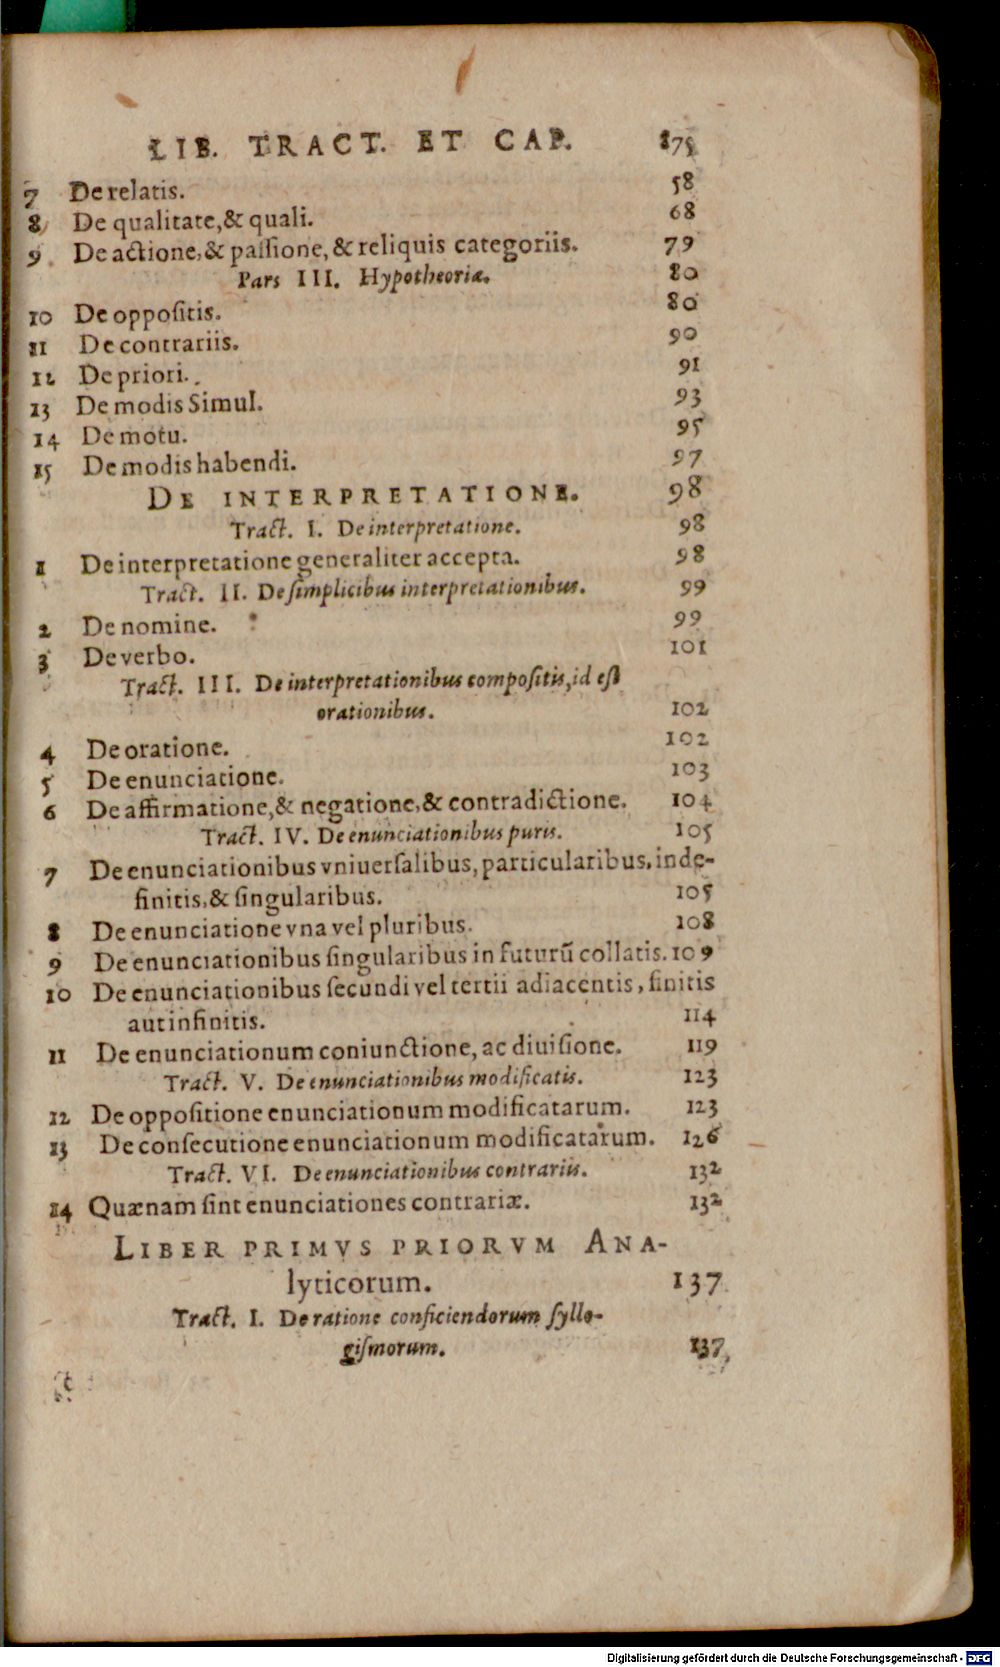 LIB. TRACT. ET CAP. 875
7 De relatis. 58
8 De qualitate, & quali. 68
9 De actione, & paſſione, & reliquis categoriis. 79
Pars III. Hypotheoriæ. 80
10 De oppoſitis. 80
11 De contrariis. 90
12 De priori. 91
13 De modis Simul. 93
14 De motu. 95
15 De modis habendi. 97
DE INTERPRETATIONE. 98
Tract. I. De interpretatione. 98
1 De interpretatione generaliter accepta. 98
Tract. II. De ſimplicibus interpretationibus. 99
2 De nomine. 99
3 De verbo. 101
Tract. III. De interpretationibus compoſitis, id eſt
orationibus. 102
4 De oratione. 102
5 De enunciatione. 103
6 De affirmatione, & negatione, & contradictione. 104
Tract. IV. De enunciationibus puris. 105
7 De enunciationibus vniuerſalibus, particularibus, inde-
finitis, & ſingularibus. 105
8 De enunciatione vna vel pluribus. 108
9 De enunciationibus ſingularibus in futurũ collatis. 109
10 De enunciationibus ſecundi vel tertii adiacentis, finitis
aut infinitis. 114
11 De enunciationum coniunctione, ac diuiſione. 119
Tract. V. De enunciationibus modificatis. 123
12 De oppoſitione enunciationum modificatarum. 123
13 De conſecutione enunciationum modificatarum. 126
Tract. VI. De enunciationibus contrariis. 132
14 Quænam ſint enunciationes contrariæ. 132
LIBER PRIMVS PRIORVM ANA-
lyticorum. 137
Tract. I. De ratione conficiendorum ſyllo-
giſmorum. 137
Digitalisierung gefördert durch die Deutsche Forschungsgemeinschaft - DFG